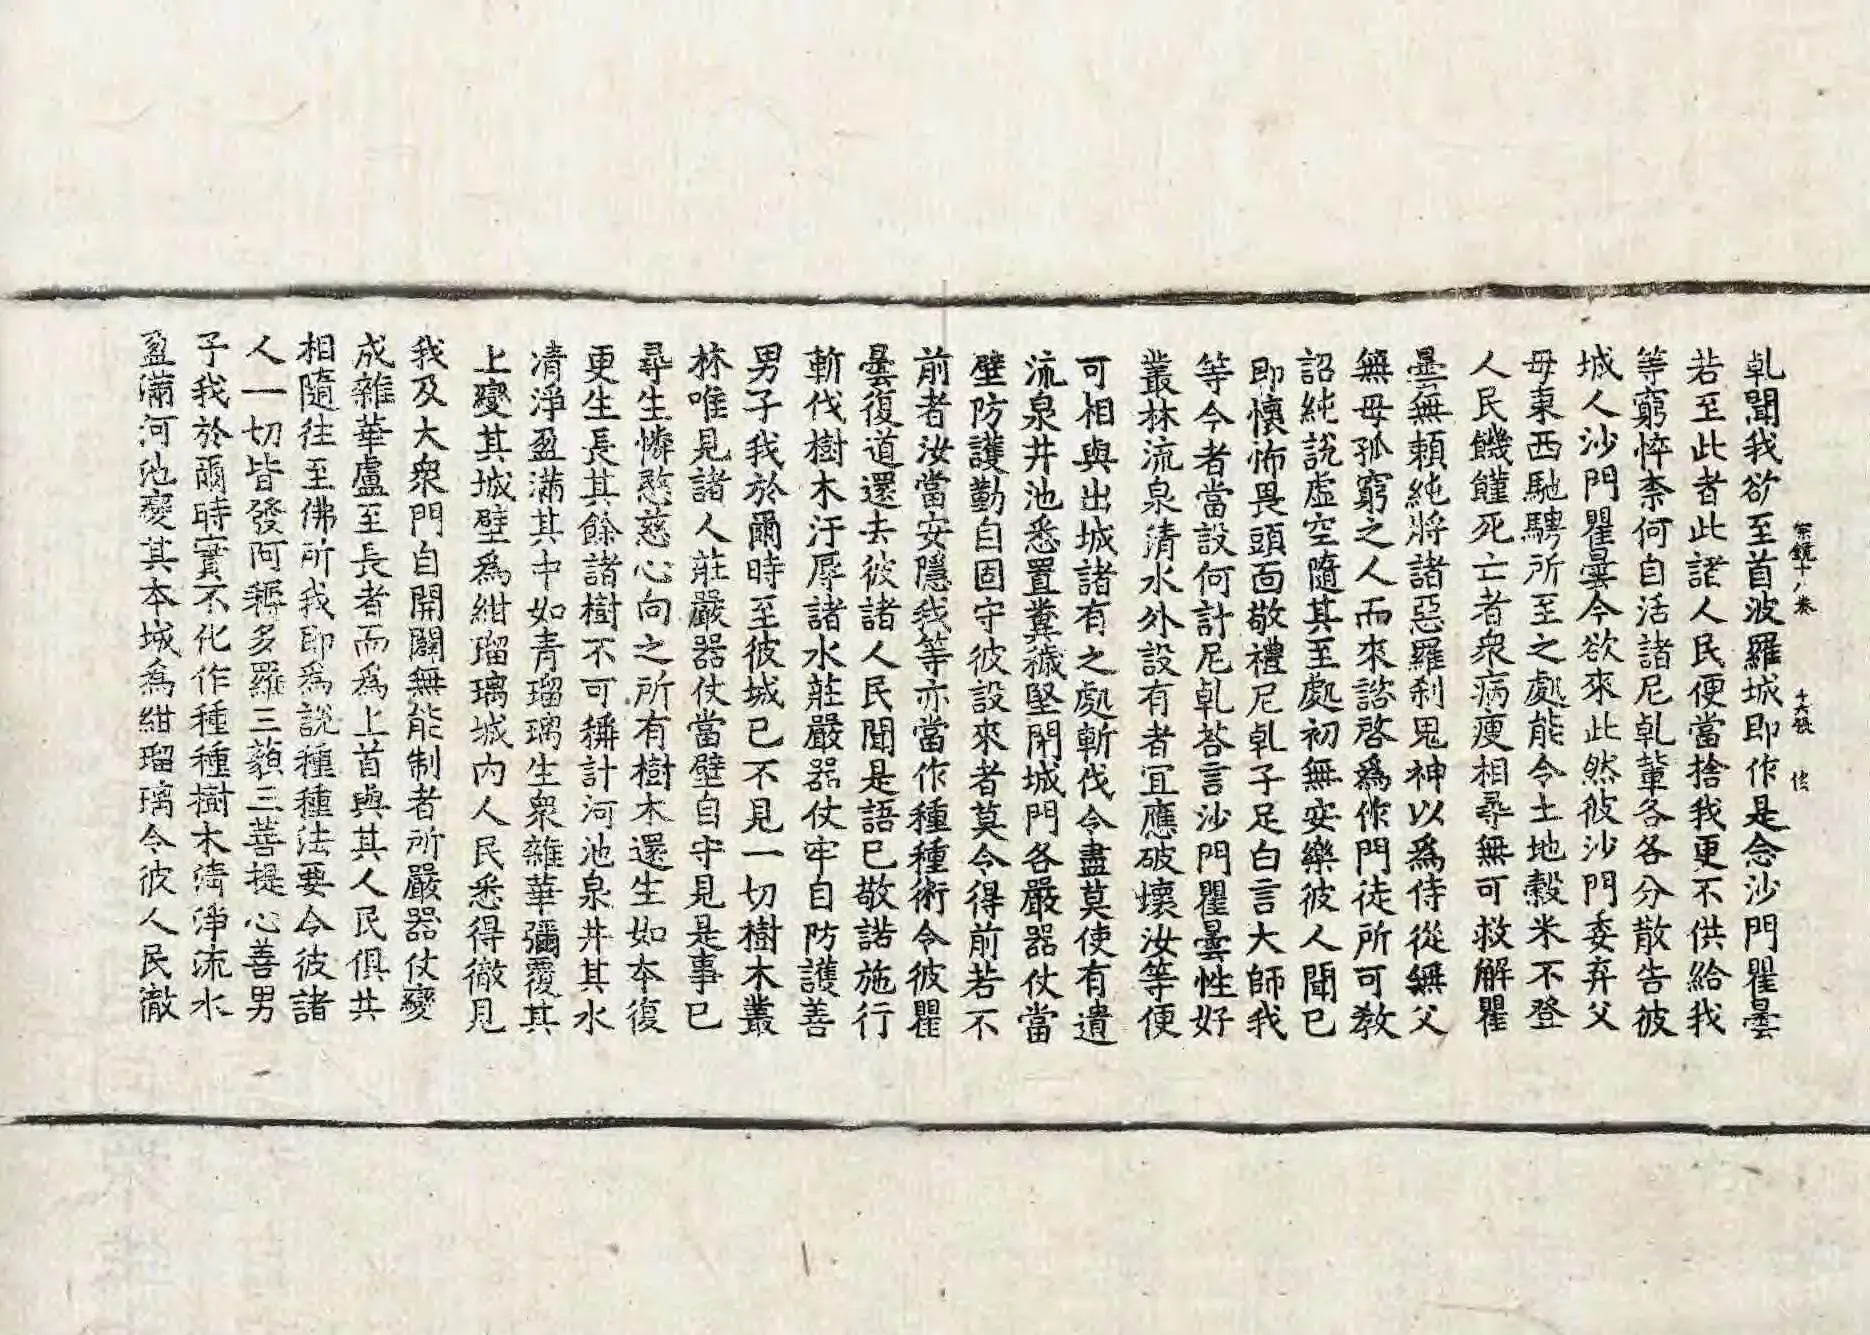 乹聞我欲至首波羅城即作是念沙門瞿曇
宗鏡十八卷 十六張 俊
若至此者此諸人民便當捨我更不供給我
等窮悴柰何自活諸尼乹軰各各分散告彼
城人沙門瞿曇今欲來此然彼沙門委弃父
母東西馳騁所至之處能令土地穀米不登
人民饑饉死亡者衆病瘦相尋無可救解瞿
曇無頼純將諸惡羅刹鬼神以爲侍從無父
無母孤窮之人而來諮啓爲作門徒所可教
詔純說虛空隨其至處初無安樂彼人聞已
即懷怖畏頭面敬禮尼乹子足白言大師我
等今者當設何計尼乹荅言沙門瞿曇性好
叢林流泉清水外設有者宜應破壞汝等便
可相與出城諸有之處斬伐令盡莫使有遺
流泉井池悉置糞穢堅閇城門各嚴器仗當
壁防護勤自固守彼設來者莫令得前若不
前者汝當安隱我等亦當作種種術令彼瞿
曇復道還去彼諸人民聞是語已敬諾施行
斬伐樹木汙辱諸水莊嚴器仗牢自防護善
男子我於爾時至彼城已不見一切樹木叢
林唯見諸人莊嚴器仗當壁自守見是事已
尋生憐愍慈心向之所有樹木還生如本復
更生長其餘諸樹不可稱計河池泉井其水
清淨盈滿其中如青瑠璃生衆雜華彌覆其
上變其城壁爲紺瑠璃城内人民悉得徹見
我及大衆門自開闢無能制者所嚴器仗變
成雜華盧至長者而爲上首與其人民俱共
相隨往至佛所我即爲說種種法要令彼諸
人一切皆發阿耨多羅三藐三菩提心善男
子我於爾時實不化作種種樹木清淨流水
盈滿河池變其本城爲紺瑠璃令彼人民徹